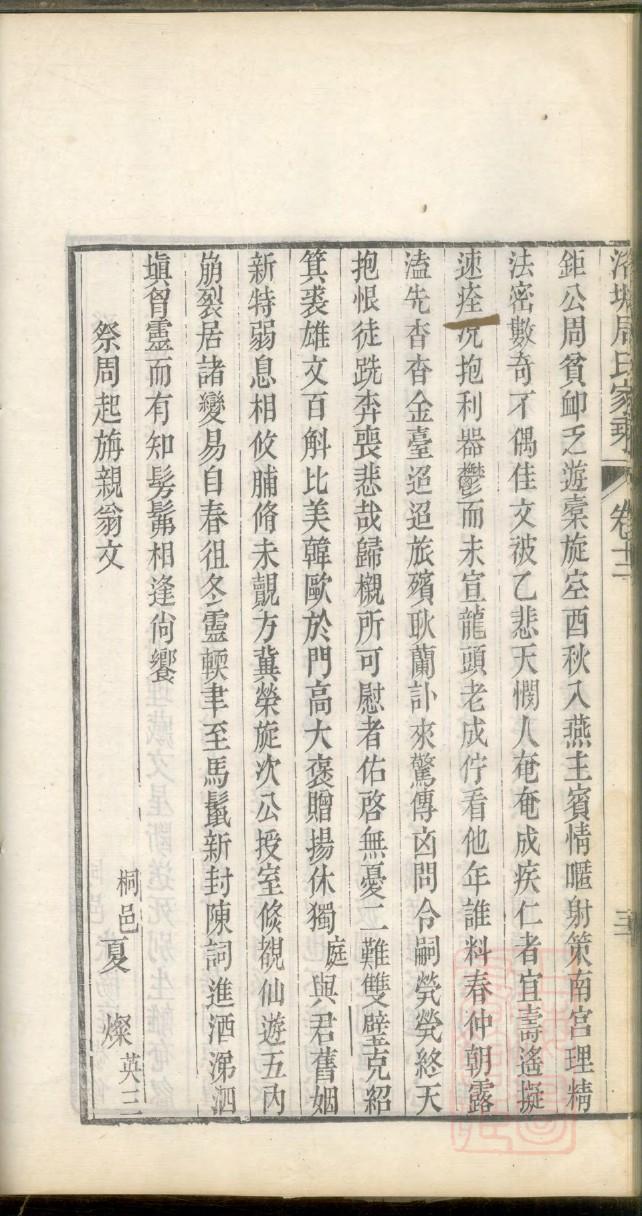 周氏家 卷十二
鉅公周貧卹乏遊橐旋空酉秋入燕主賓情嘔射策南宮理精
法密數奇不偶佳文被乙悲天憫人奄奄成疾仁者宜壽遙擬
速痊況抱利器鬱而未宣龍頭老成佇看他年誰料春仲朝露
溘先杳杳金臺迢迢旅殯耿蘭訃來驚傳㐫問令嗣煢煢終天
抱恨徒跣奔喪悲哉歸櫬所可慰者佑啓無憂二難雙璧克紹
箕裘雄文百斛比美韓歐於門高大褒贈揚休獨庭與君舊姻
新特弱息相攸脯脩未覿方冀榮旋次公授室倏覩仙遊五內
崩裂居諸變易自春徂冬靈輀聿至馬鬣新封陳詞進酒涕泗
塡胷靈而有知髣髴相逢尙饗
祭周起旃親翁文
桐邑夏燦英三